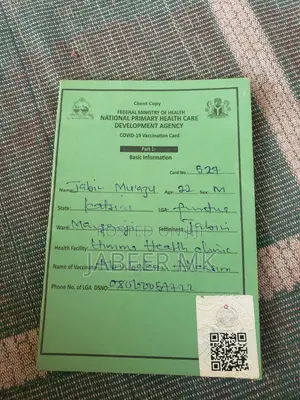 Client Copy
FEDERAL MINISTRY OF HEALTH
NATIONAL PRIMARY HEALTH CARE
DEVELOPMENT AGENCY
COVID-19 Vaccination Card
Part 1:
Basic Information
Card No: 527
Name: Jabir Age: 22 Sex: M
State: Katsina LGA: Funtua
Ward: Settlement:
Health Facility: Umma Health clinic
Name of Vaccinator
Phone No. of LGA DSNO:
JABEER MK